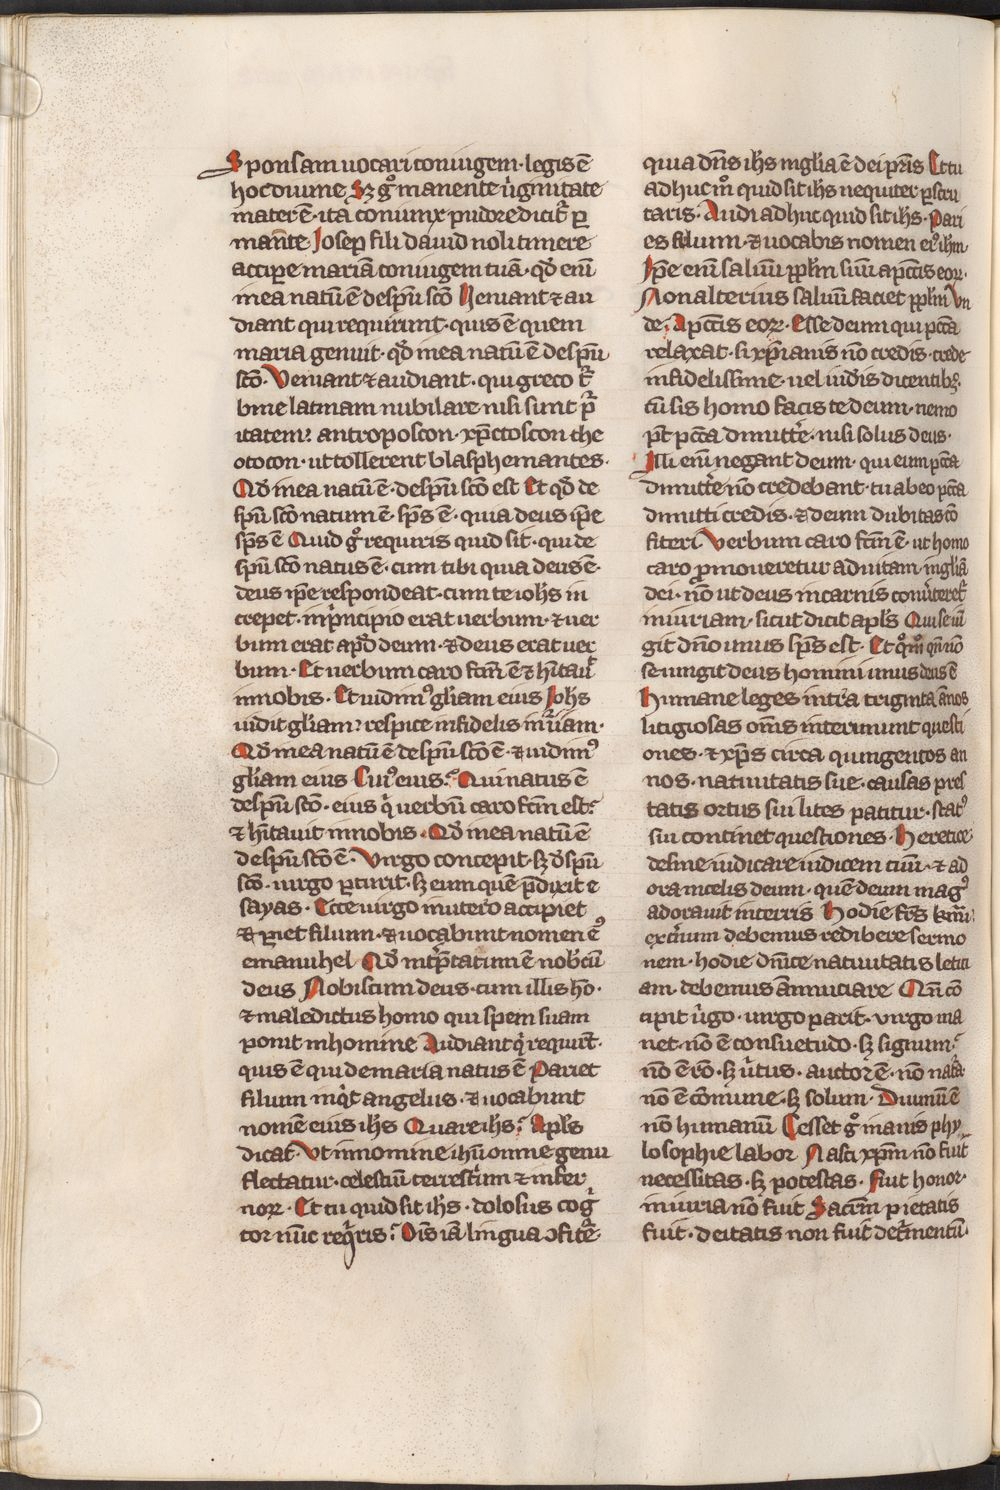 Sponsam uocari coniugem · legis ē
hoc diuine Sꝫ gͦ manente uͥginitate
mater ē · ita coniunx pudore dicit᷑ ꝑ
manēte Joseph fili dauid noli timere
accipe mariā coniugem tuā · qd̄ enī
in ea natū ē de spū sc̄o Veniant ⁊ au
diant qui requirunt · quis ē quem
maria genuit · qd̄ in ea natū ē de spū
sc̄o · Veniant ⁊ audiant · qui greco t᷑
bine latinam nubilare nisi sunt pͥ
itatem: antroposcon · xp̄ctoscon the
otocon · ut tollerent blasphemantes ·
Qd̄ in ea natū ē · de spū sc̄o est Et qd̄ de
spū sc̄o natum ē · sp̄s ē · quia deus ip̄e
sp̄s ē Quid gͦ requiris quid sit · qui de
spū sc̄o natus ē · cum tibi quia deus ē ·
deus ip̄e respondeat · cum te ioh̄s in
crepet · in pͥncipio erat uerbum · ⁊ uer
bum erat apd̄ deum · ⁊ deus erat uer
bum · Et uerbum caro fc̄m ē ⁊ hītauͥt
in nobis · Et uidimꝰ gl̄iam eius Joh̄s
uidit gl̄iam: respice infidelis iniͥuiam ·
Qd̄ in ea natū ē de spū sc̄o ē · ⁊ uidimꝰ
gl̄iam eius Cuiꝰ eius? Qui natus ē
de spū sc̄o · eius qͥ uerbū caro fc̄m est:
⁊ hītauit in nobis · Qd̄ in ea natū ē
de spū sc̄o ē · Virgo concepit · sꝫ d̄ spū
sc̄o · uirgo ꝑturit · sꝫ eum quē p̄dixit e
sayas · Ecce uirgo in utero accipiet
⁊ ꝑiet filium · ⁊ uocabunt nomen eꝰ
emanuhel Qd̄ int̓p̄tatum ē nobcū
deus Nobiscum deus · cum illis hō ·
⁊ maledictus homo qui spem suam
ponit in homine Audiant qͥ requirūt ·
quis ē qui de maria natus ē Pariet
filium inqͥt angelus · ⁊ uocabunt
nomē eius ih̄s Quare ih̄s? Apl̄s
dicat · Vt in nomine ih̄u omne genu
flectatur · celestiū terrestriū ⁊ infer
noꝝ · Et tu quid sit ih̄s · dolosus cogͥ
tor nūc reqͥris? Oīs iā lingua ɔfitet᷑ ·
quia dn̄s ih̄s in gl̄ia ē dei pr̄is Et tu
adhuc mͦ quid sit ih̄s nequiter ꝑscru
taris · Audi adhuc quid sit ih̄s · Pari
es filium · ⁊ uocabis nomen eiꝰ ih̄m ·
Ip̄e enī saluū ppl̄m suū a pc̄cis eoꝝ ·
Non alterius saluū faciet ppl̄m Vn
de? A pc̄cis eoꝝ · Esse deum qui pc̄ca
relaxat · si xp̄ianis nō credis · crede
infidelissime · uel iud̄is dicentibꝫ ·
cū sis homo facis te deum · nemo
pt̄ pc̄ca dimitte᷑ · nisi solus deus ·
Illi enī negant deum · qui eum pc̄ca
dimitte᷑ nō credebant · tu ab eo pc̄ca
dimitti credis · ⁊ deum dubitas cō
fiteri Verbum caro fc̄m ē · ut homo
caro ꝓmoueretur ad uitam · in gl̄iā
dei · nō ut deus in carnis conūteret᷑
iniuriam · sicut dicit apl̄s Qui se iū
git dn̄o unus sp̄s est · Et qͦmͦ qn̄ nō
se iungit deus homini unus deus ē
Humane leges intra triginta ānos
litigiosas om̄s interimunt questi
ones · ⁊ xp̄s circa quingentos an
nos · natiuitatis sue · causas pres
tatis ortus sui lites patitur · statꝰ
sui continet questiones · Heretice
desine iudicare iudicem tuū · ⁊ ad
ora in celis deum · quē deum magꝰ
adorauit in terris Hodie fr̄s km̄i
extͥnum debemus redibere sermo
nem · hodie dn̄ice natiuitatis letici
am · debemus ānuuciare Qn̄ cō
cipit uͥgo · uirgo parit · virgo ma
net · nō ē consuetudo · sꝫ signum?
nō ē rō · sꝫ uͥtus · auctor ē · nō nat᷑a ·
nō ē cōmune · sꝫ solum · Diuinū ē
nō humanū Cesset gͦ inanis phy
losophie labor Nasci xp̄m nō fuit
necessitas · sꝫ potestas · Fuit honor ·
iniuria nō fuit Sacrm̄ pietatis
fuit · deitatis non fuit det᷑mentū ·